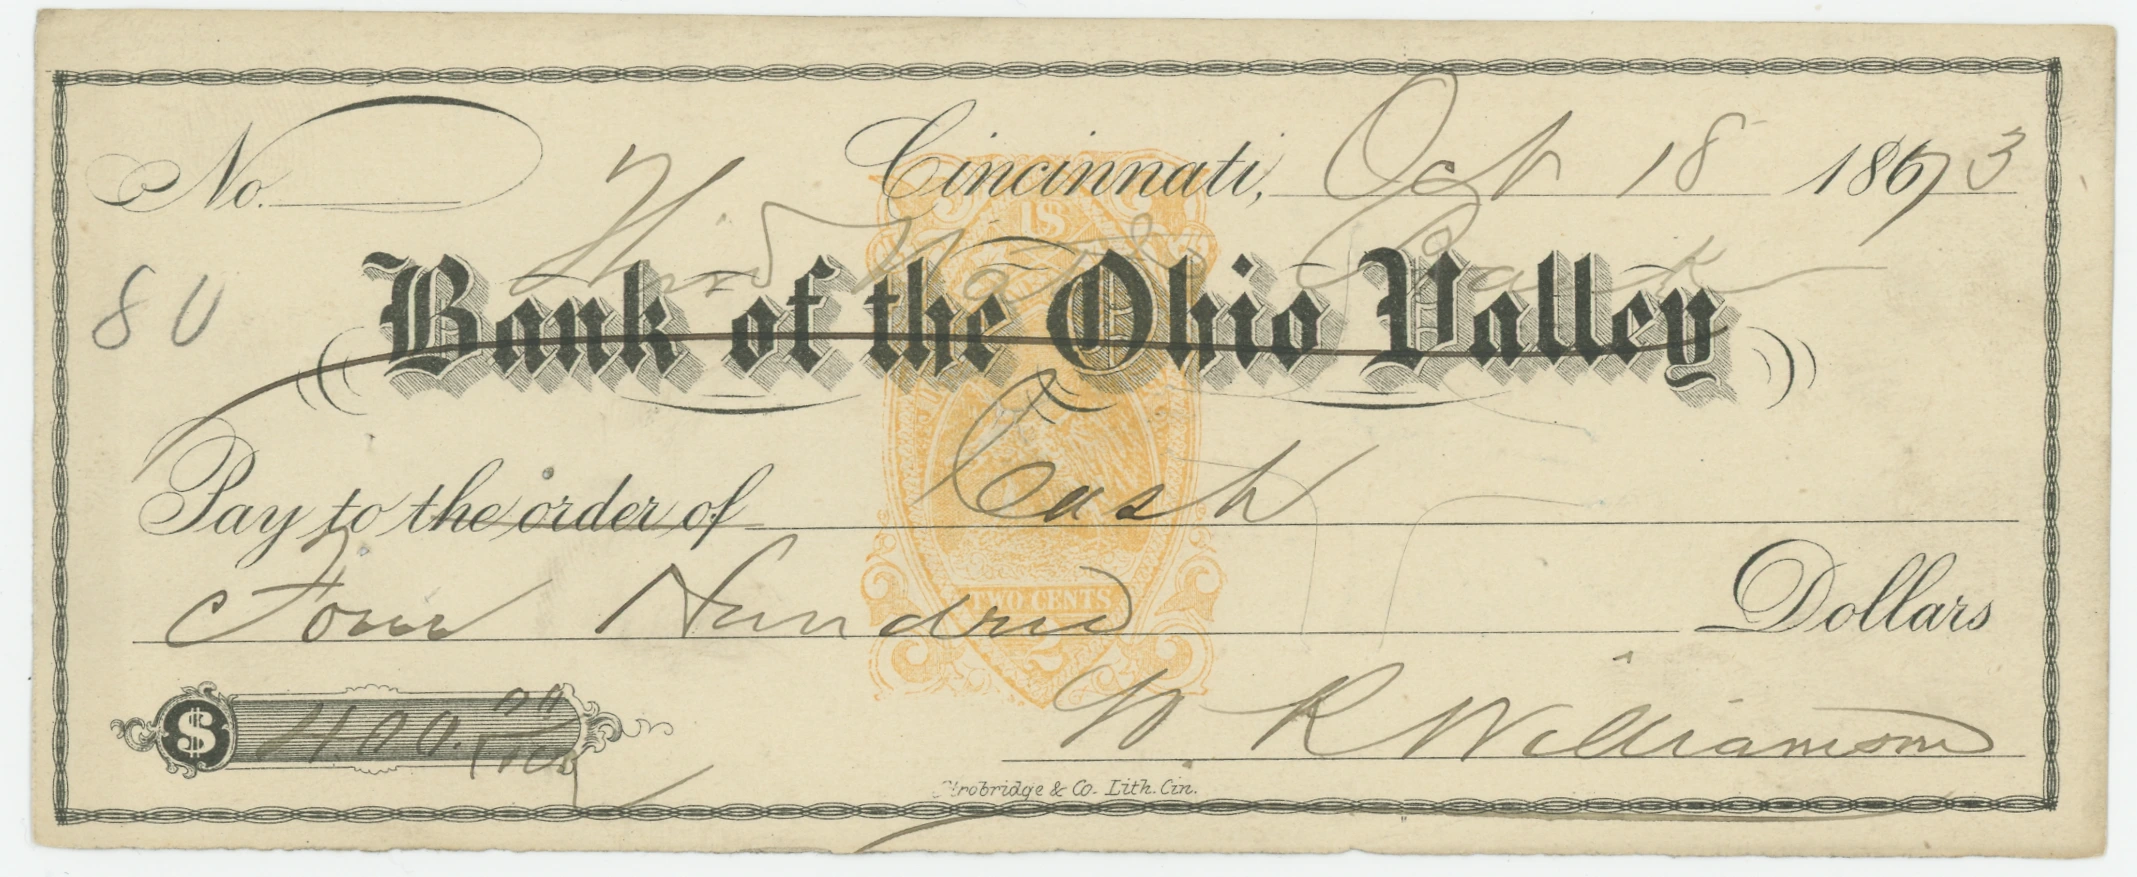 No.
Cincinnati, Oct 18 1873
Third Nat Bank
80
Bank of the Ohio Valley
Pay to the order of Cash
Four Hundred Dollars
$ 400.00/100
W R Williamson
Strobridge & Co. Lith. Cin.
U.S.
TWO CENTS
2